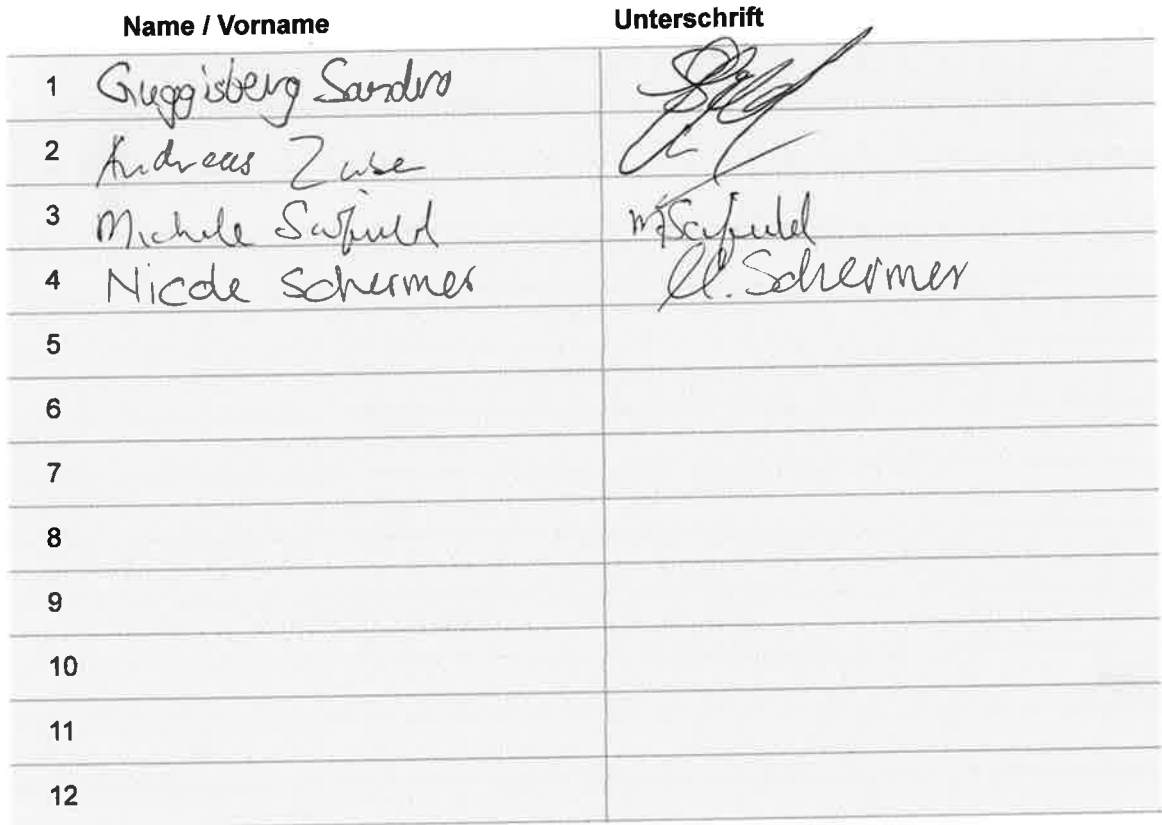 Name / Vorname Unterschrift
1 Guggisberg Sandro
2 Andreas
3 Michele
4 Nicole Schermer Schermer
5
6
7
8
9
10
11
12